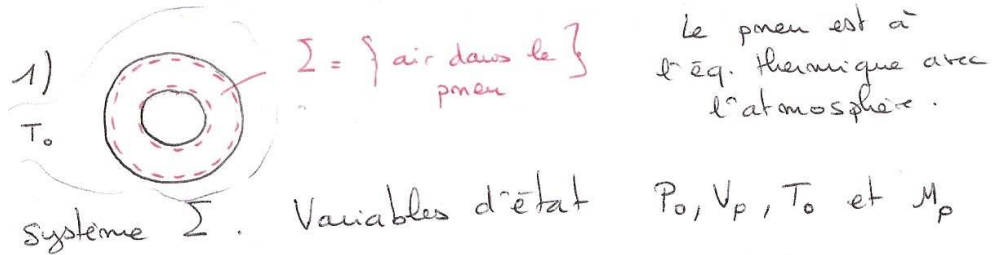 1)
T₀
Σ = { air dans le }
pneu
Le pneu est à
l'éq. thermique avec
l'atmosphère.
système Σ. Variables d'état P₀, Vₚ, T₀ et Mₚ